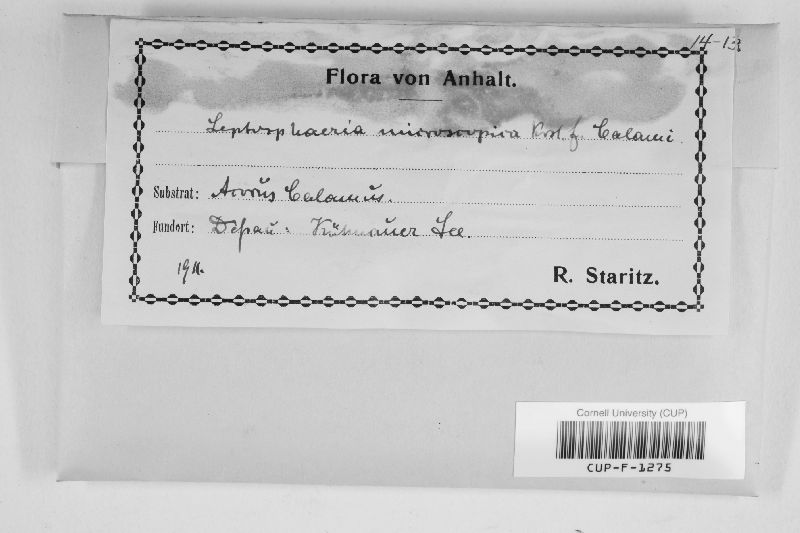 14-13
Flora von Anhalt.
Leptosphaeria microscopica f. Calami.
Substrat: Acorus Calamus.
Fundort: Deßau: Kühnauer See.
1911.
R. Staritz.
Cornell University (CUP)
CUP-F-1275